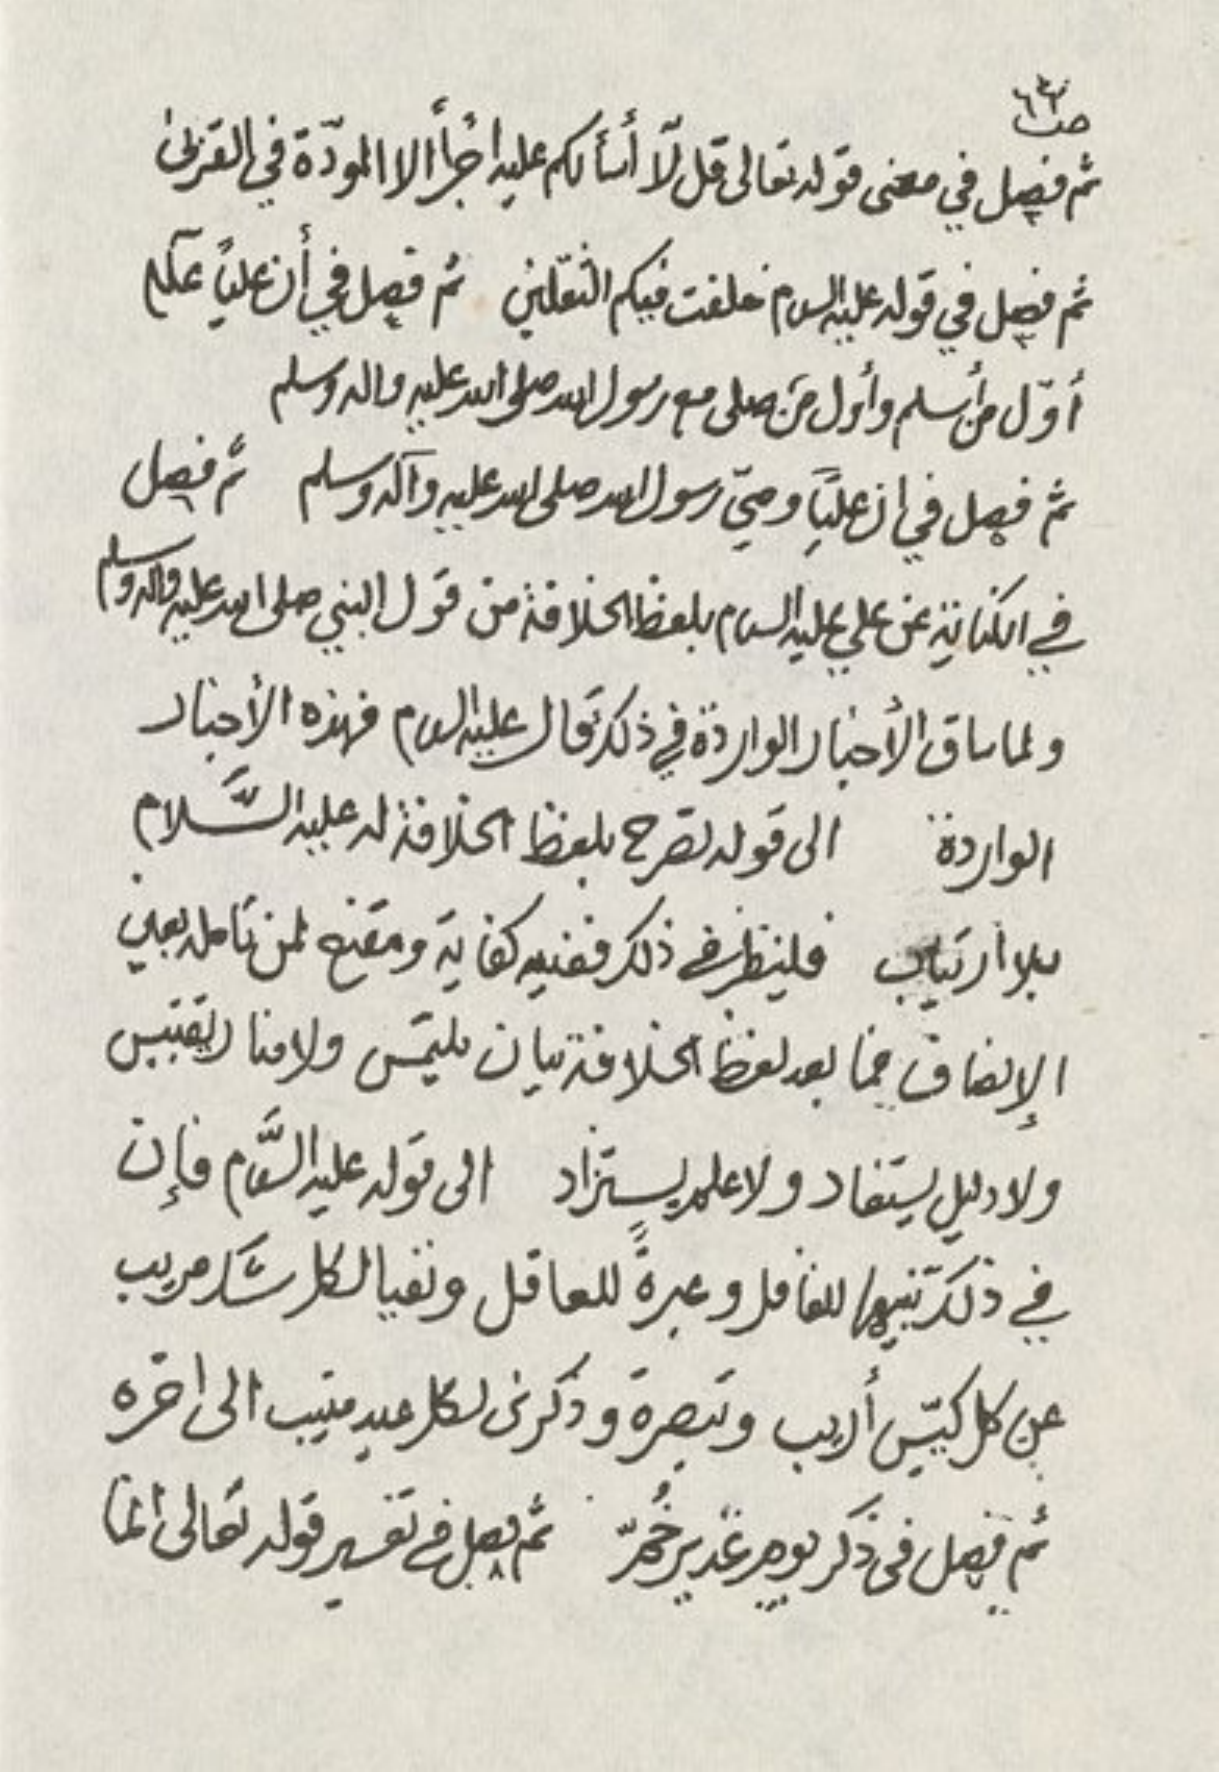 ثم فصل في معنى قوله تعالى قل لّا أسألكم عليه اجراً الا المودّة في القربى
ثم فصل في قوله عليه السلام خلفت فيكم الثقلين ثم فصل في أن علياً عليه
أوّل من أسلم وأول من صلى مع رسول الله صلى الله عليه واله وسلم
ثم فصل في ان علياً وصيّ رسول الله صلى الله عليه وآله وسلم ثم فصل
في الكناية عن علي عليه السلام بلفظ الخلافة من قول النبي صلى الله عليه واله وسلم
ولما ساق الأخبار الواردة في ذلك قال عليه السلام فهذه الأخبار
الواردة الى قوله تصرح بلفظ الخلافة له عليه السَّلام
بلا ارتياب فلينظر في ذلك ففيه كفاية ومقنع لمن تأمله بعين
الإنصاف فما بعد لفظ الخلافة بيان يلتمس ولا منار يقتبس
ولا دليل يستفاد ولا علم يستزاد الى قوله عليه السَّلام فإن
في ذلك تنبيها للغافل وعبرةً للعاقل ونفيا لكل شك مريب
عن كل كيّس أريب وتبصرة وذكرى لكل عبد منيب الى اخره
ثم فصل في ذكر يوم غدير خُمّ ثم فصل في تفسير قوله تعالى انما